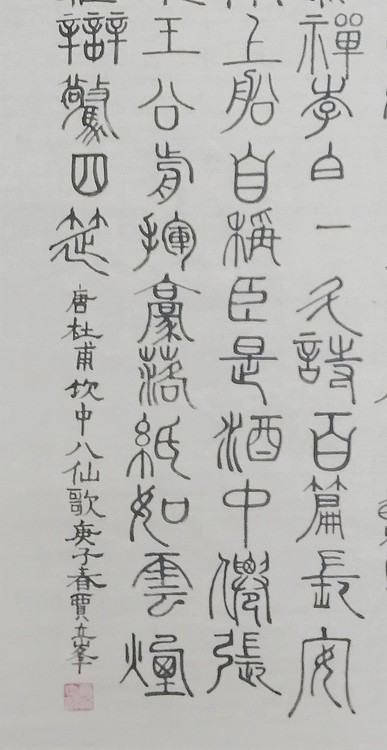 禪李白一斗詩百篇長安
上船自稱臣是酒中僊張
王公前揮毫落紙如雲煙
辯驚四筵
唐杜甫飲中八仙歌庚子春賈立峯